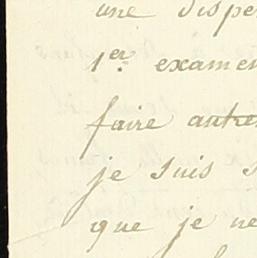 une dispe
1er examen
faire autre
je suis s
que je ne